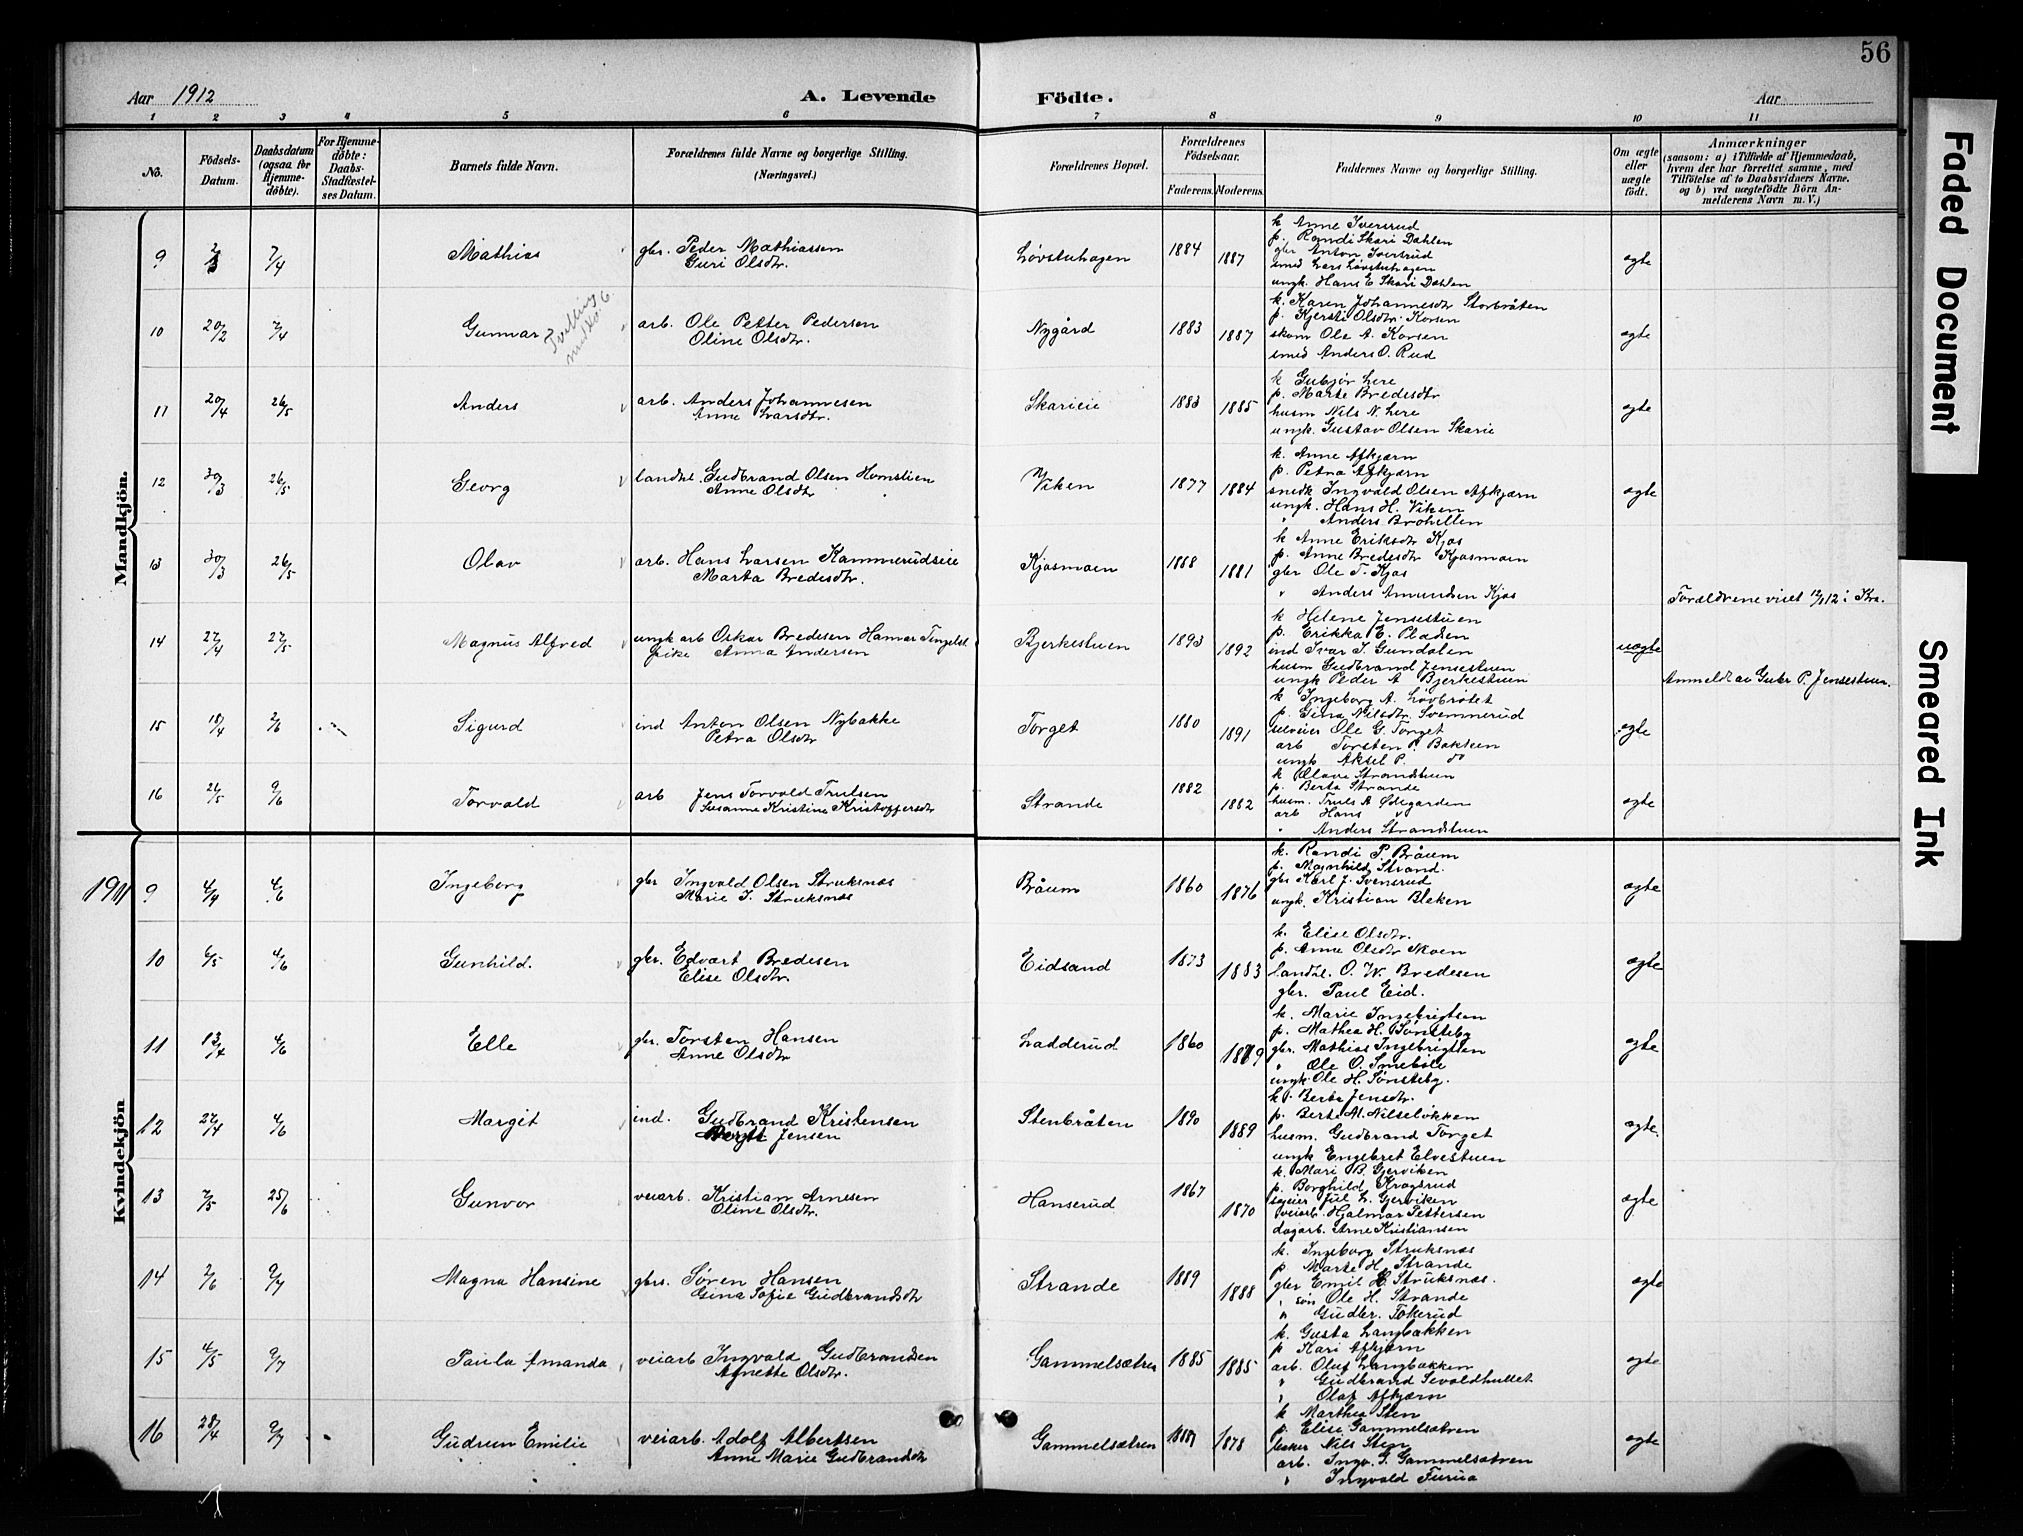 56
Aar 1912
A. Levende
Födte.
Aar
1 2 3 4 5 6 7 8 9 10 11
No.
Födsels-Datum.
Daabsdatum (ogsaa for Hjemmedöbte).
For Hjemmedöbte: Daabs-Stadfæstelses Datum.
Barnets fulde Navn.
Forældrenes fulde Navne og borgerlige Stilling. (Næringsvei.)
Forældrenes Bopæl.
Forældrenes Födselsaar.
Faderens. Moderens.
Faddernes Navne og borgerlige Stilling.
Om ægte eller uægte födt.
Anmærkninger
(saasom: a) i Tilfælde af Hjemmedaab, hvem der har forrettet samme, med Tilföielse af to Daabsvidners Navne. og b) ved uægtefödte Börn Anmelderens Navn m. V.)
Mandkjön.
9 2/3 7/4 Mathias gbr. Peder Mathiassen
Guri Olsdtr. Løvstuhagen 1884 1887 ægte
k Anne Iversrud
p. Randi Skari Dahlen
gbr Anton Iversrud
smed Lars Løvstuhagen
ungk. Hans E Skari Dahlen
10 20/2 7/4 Gunnar Tvilling arb. Ole Petter Pedersen
Oline Olsdtr. Nygård 1883 1887 ægte
k. Karen Johannesdtr Storbråten
p. Kjersti Olsdtr. Korsen
skom Ole A. Korsen
smed Anders O. Rud
11 20/4 26/5 Anders arb. Anders Johannesen
Anne Larsdtr. Skarieie 1883 1885 ægte
k Gubjør Lere
p. Marte Bredesdtr
husm Nils N. Lere
ungk. Gustav Olsen Skarie
12 30/3 26/5 Georg landhl. Gudbrand Olsen Homslien
Anne Olsdtr Viken 1877 1884 ægte
k. Anne Afkjærn
p. Petra Afkjærn
snedk Ingvald Olsen Afkjærn
ungk. Hans H. Viken
" Anders Brohellen
13 30/3 26/5 Olav arb. Hans Larsen Kammerudseie
Marta Bredesdtr. Kjosmoen 1868 1881
k Anne Eriksdtr Kjos
p. Anne Bredesdtr Kjosmoen
gbr Ole T. Kjos
" Anders Amundsen Kjos
Forældrene viet 12/1 12 i Kra.
14 27/4 27/5 Magnus Alfred ungk arb Oskar Bredesen Hamar Tingelst
pike Anna Andersen Bjerkestuen 1893 1892 uægte
k Helene Jensestuen
p. Erikka E. Pladsen
ind Ivar I. Gundalen
husm Gudbrand Jensestuen
ungk Peder A Bjerkestuen
Anmeldt av Gubr P. Jensestuen.
15 18/4 2/6 Sigurd ind Anton Olsen Nybakke
Petra Olsdtr Torget 1880 1891 ægte
k Ingeborg A. Løvbrøtet
p. Gina Nilsdtr. Svennerud
selveier Ole G. Torget
arb Torsten P. Bakken
ungk Aksel P. do
16 26/5 9/6 Torvald arb Jens Torvald Trulsen
Susanne Kristine Kristoffersdtr Strande 1882 1882 ægte
k Olave Strandstuen
p. Berta Strande
husm. Truls A Ødegarden
arb Hans "
" Anders Strandstuen
Kvindekjön
1911
9 4/4 4/6 Ingeborg gbr Ingvald Olsen Struksnæs
Marie I. Struksnæs Bråum 1860 1876 ægte
k. Randi P. Bråum
p. Magnhild Strand.
gbr Karl J. Svensrud
ungk. Kristian Bleken
10 6/5 4/6 Gunhild. gbr. Edvart Bredesen
Elise Olsdtr. Eidsand 1873 1883 ægte
k. Elise Olsdtr.
p. Anne Olsdtr Moen
landhl. O. W. Bredesen
gbr. Paul Eid.
11 13/4 4/6 Elle gbr. Torsten Hansen
Anne Olsdtr Ladderud 1860 ægte
k. Marie Ingebrigtsen
p. Mathea H. Sønsteby
gbr. Mathias Ingebrigtsen
" Ole O. Smebøle
ungk. Ole H. Sønsteby.
12 27/4 4/6 Margit ind. Gudbrand Kristensen
Jensen Stenbråten 1890 1889 ægte.
k. Berte Jensdtr.
p. Berte M. Nilseløkken
husm. Gudbrand Torget
ungk Engebret Elvestuen
13 7/5 25/6 Gunvor veiarb. Kristian Arnesen
Oline Olsdtr. Hanserud 1867 1870 ægte
k. Mari B. Gjerviken
p. Borghild Kragsrud
Jul L. Gjerviken
veiarb. Hjalmar Pettersen
dagarb. Arne Kristiansen
14 2/6 9/7 Magna Hansine gbrs. Søren Hansen
Gina Sofie Gudbrandsdtr Strande 1889 1888 ægte
k. Ingeborg Struksnæs
p Marte H. Strande
gbr Emil H. Struksnæs.
" søn Ole H. Strande
" Gudbr. Tokerud
15 4/5 9/7 Paula Amanda veiarb Ingvald Gudbrandsen
Agnette Olsdtr. Gammelsætren 1885 1885 ægte
k. Gusta Langbakken
p Kari Afkjærn
arb. Oluf Langbakken
" Gudbrand Sevaldhullet
" Olaf Afkjærn
16 28/4 9/7 Gudrun Emilie veiarb. Adolf Albertsen
Anne Marie Gudbrandsdtr Gammelsætren 1878 ægte
k Marthea Sten
p. Elise Gammelsætren
Nils Sten
arb. Ingv. G. Gammelsætren
" Ingvald Furua
Faded Document
Smeared Ink